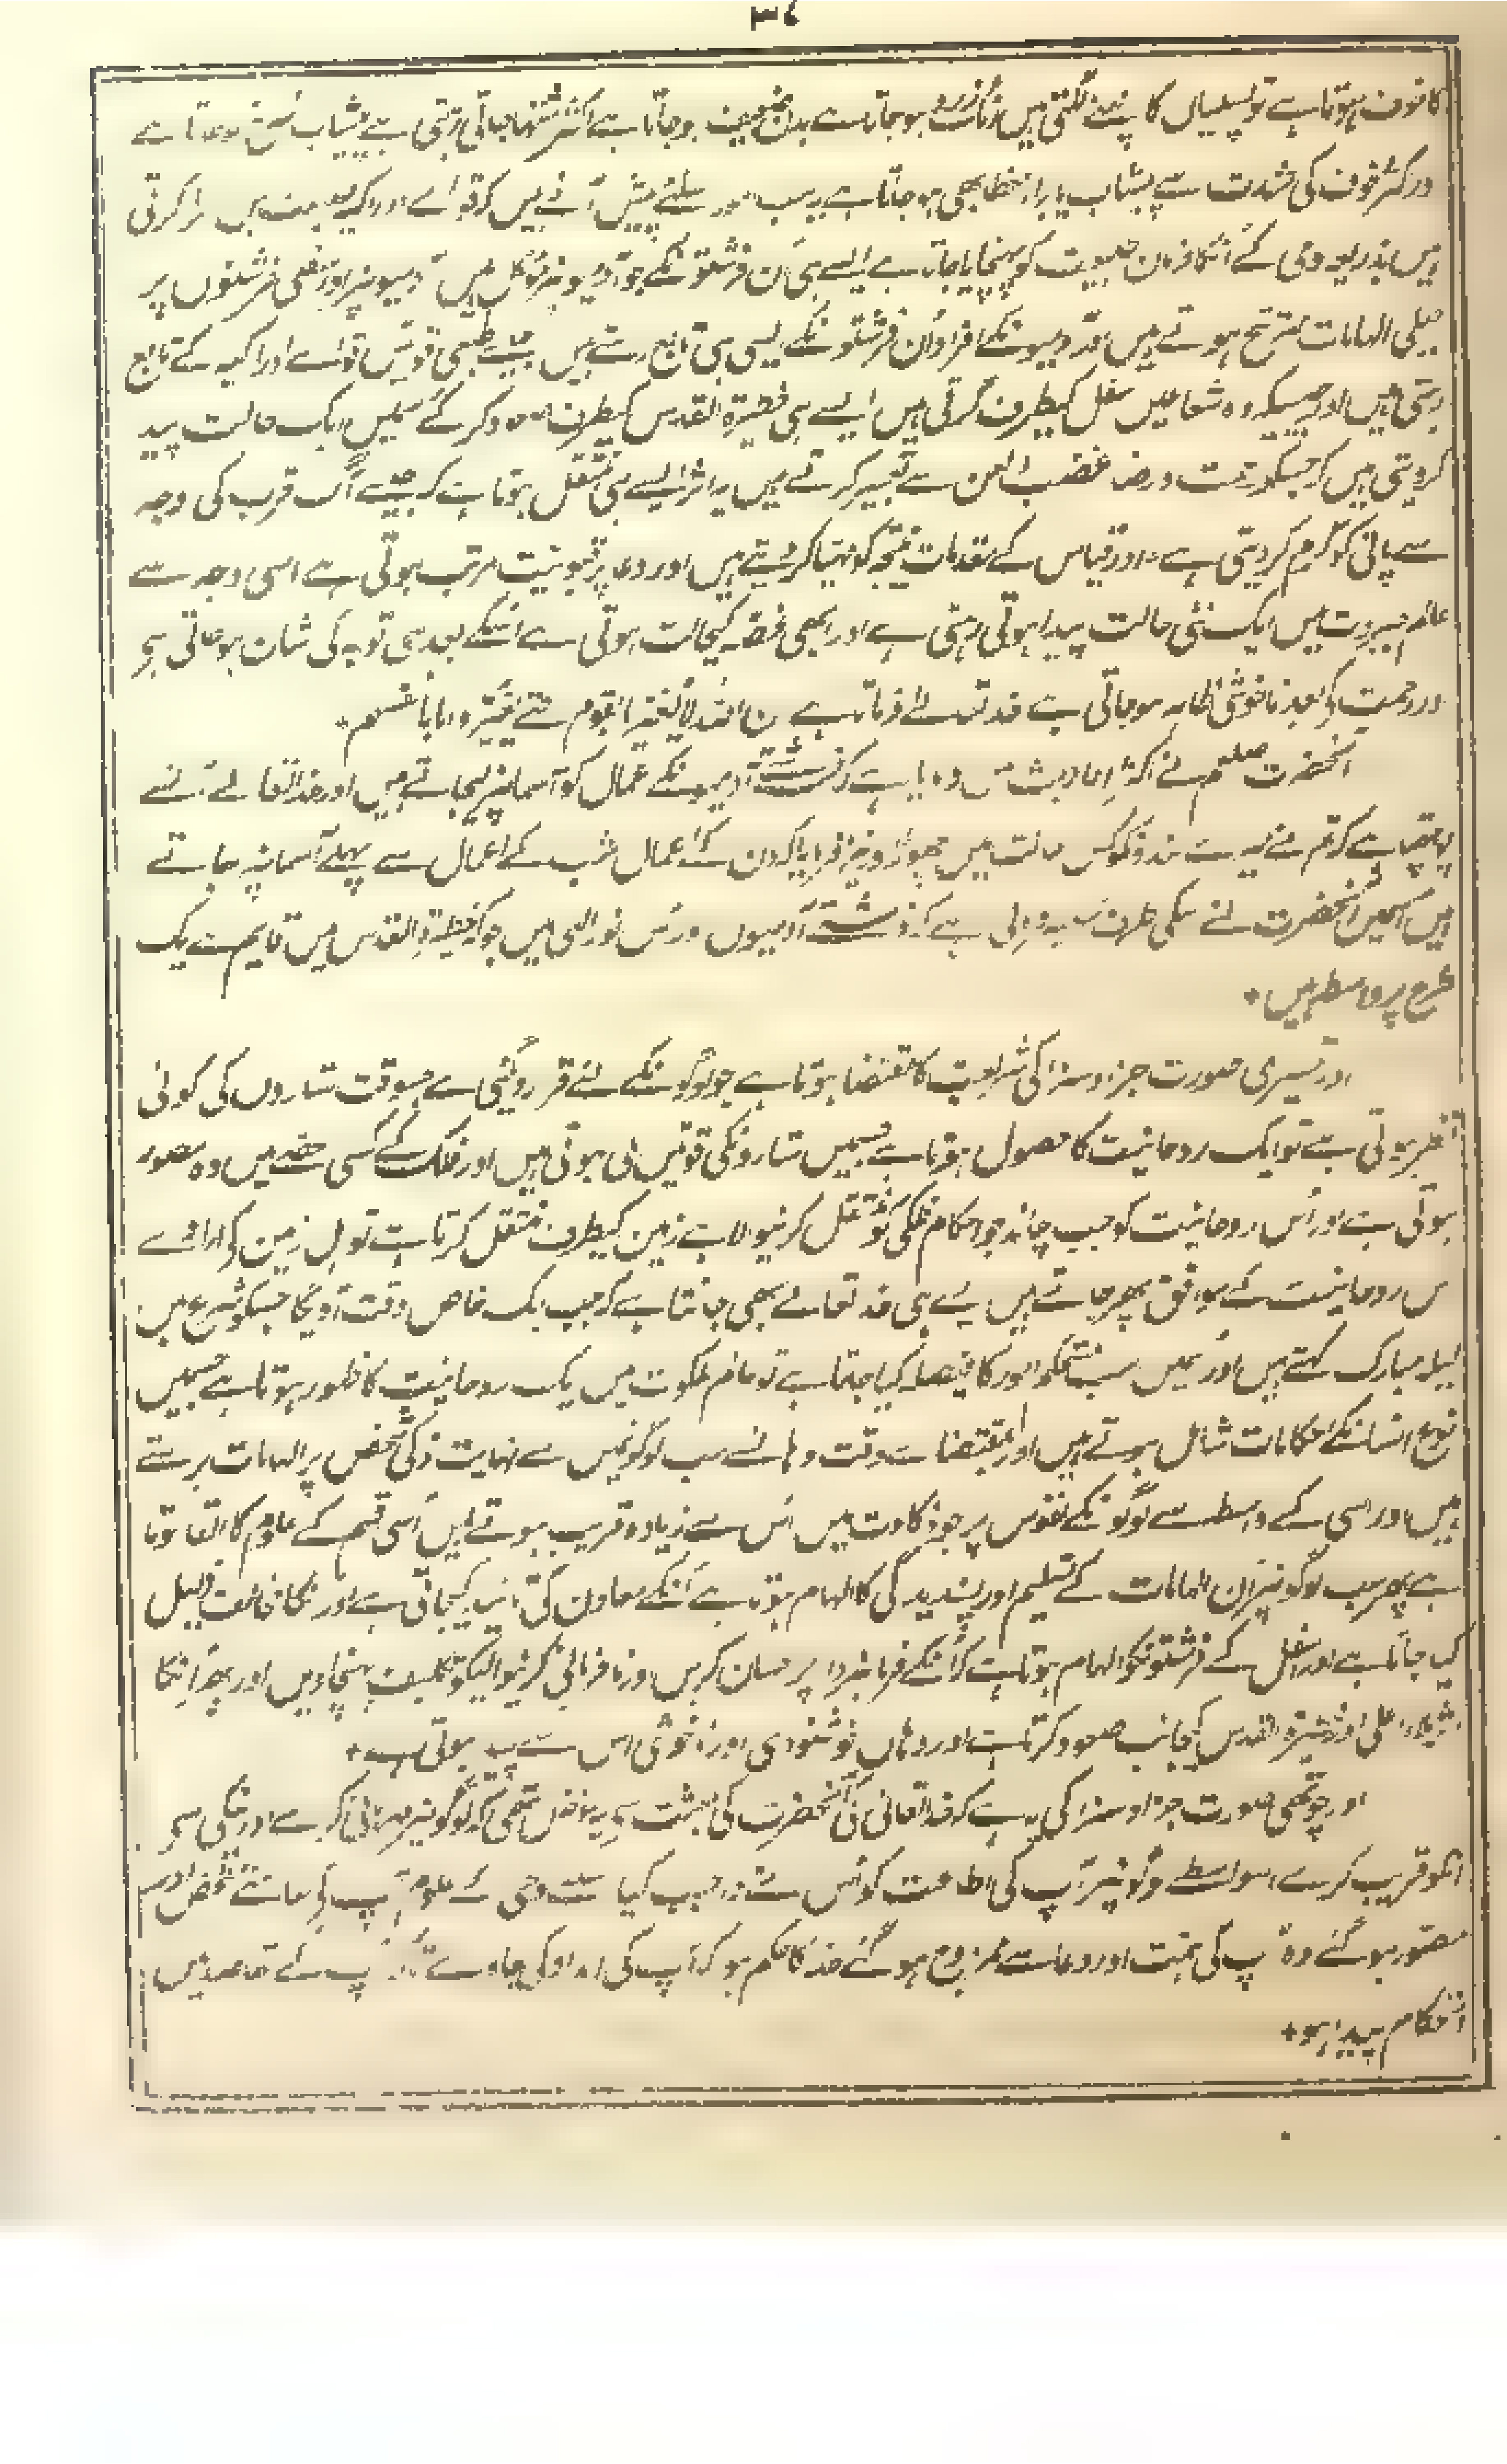 ۳۶
کا خوف ہوتا ہے تو پسلیاں کانپنے لگتی ہیں رنگ زرد ہو جاتا ہے بدن ضعیف ہو جاتا ہے اکثر اشتہا جاتی رہتی ہے پیشاب سرخ ہو جاتا ہے
در کثر خوف کی شدت سے پیشاب یا براز خطا بھی ہو جاتا ہے یہ سب امور سلئے پیش آتے ہیں کہ قواے ادراکیہ طبیعت میں اثر کرتی
ہیں بذریعہ وحی کے انکا فرمان طبیعت کو پہنچایا جاتا ہے ایسے ہی ان فرشتونکے جو آدمیونپر موکل ہیں آدمیونپر اور سفلی فرشتوں پر
جبلی الہامات مترشح ہوتے ہیں اور آدمیونکے افراد ان فرشتونکے ایسی ہی تابع رہتے ہیں جیسے طبعی قوتیں قواے ادراکیہ کے تابع
رہتی ہیں اور جیسیکہ وہ شعاعیں سفل کیطرف گرتی ہیں ایسے ہی خطیرۃ القدس کیطرف صعود کر کے سمیں ایک حالت پید
کر دیتی ہیں کہ جسکو رحمت و رضا غضب و لعن سے تعبیر کرتے ہیں یہ اثر ایسے ہی منتقل ہوتا ہے کہ جیسے آگ قرب کی وجہ
سے پانی کو گرم کر دیتی ہے اور قیاس کے مقدمات نتیجہ کو مہیا کر دیتے ہیں اور دعا پر قبولیت مرتب ہوتی ہے اسی وجہ سے
عالم جبروت میں ایک نئی حالت پیدا ہوتی رہتی ہے اور ابھی غصہ کیحالت ہوتی ہے اسکے بعد ہی توبہ کی شان ہو جاتی ہی
ور رحمت کی بعد ناخوشی ظاہر ہو جاتی ہے خدا تعالے فرماتا ہے ان اللہ لا یغیر ما بقوم حتے یغیروا ما بانفسہم ۔
آنحضرت صلعم نے اکثر احادیث میں فرمایا ہے کہ فرشتے آدمیونکے اعمال کو آسمانپر لیجاتے ہیں اور خدا تعالے اُنسے
پوچھتا ہے کہ تم نے میرے بندونکو کس حالت میں چھوڑا اور نیز فرمایا کہ دن کے اعمال شب کے اعمال سے پہلے آسمانپر جاتے
ہیں اسمیں آنحضرت نے سکی طرف اشارہ فرمائی ہے کہ فرشتے آدمیوں ور اس نور الہی میں جو کہ خطیرۃ القدس میں قایم ہے یک
طرح پر واسطہ ہیں ۔
اور تیسری صورت جزا و سزا کی شریعت کا مقتضا ہوتا ہے جو لوگونکے لئے قرار دیگئی ہے جسوقت ستاروں کی کوئی
نظر ہوتی ہے تو ایک روحانیت کا حصول ہوتا ہے جسمیں ستارونکی قوتیں ملی ہوتی ہیں اور فلک کے کسی حصے میں وہ متصور
ہوتی ہے اور اُس روحانیت کو جب چاند جو احکام فلکی کو نقل کرنیوالا ہے زمین کیطرف منتقل کرتا ہے تو اہل زمین کی ارادے
س روحانیت کے موافق پھر جاتے ہیں ایسے ہی خدا تعالے بھی جانتا ہے کہ جب ایک خاص وقت آویگا جسکو شرع میں
لیلہ مبارک کہتے ہیں اور جسمیں سب محکم امور کا فیصلہ کیا جاتا ہے تو عالم ملکوت میں یک روحانیت کا ظہور ہوتا ہے جسمیں
نوع انسانکے احکامات شامل ہوتے ہیں اور بمقتضاے وقت وہانسے سب لوگونمیں سے نہایت ذکی شخص پر الہامات برستے
ہیں اور اسی کے واسطہ سے لوگونکے نفوس پر جو ذکاوت میں اُس سے زیادہ قریب ہوتے ہیں اُسی قسم کے علوم کا القا ہوتا
ہے پھر سب لوگونپر ان الہامات کے تسلیم اور پسندیدگی کا الہام ہوتا ہے اُنکے معاون کی تائید کیجاتی ہے اور انکا مخالف ذلیل
کیا جاتا ہے اور اسفل کے فرشتونکو الہام ہوتا ہے کہ اُنکے فرمانبردار پر احسان کریں اور نافرمانی کرنیوالیکو تکلیف پہنچاویں اور پھر اُنکا
اثر ملاء اعلی اور خطیرۃ القدس کیجانب صعود کرتا ہے اور وہاں خوشنودی اور ناخوشی اس سے پید ہوتی ہے ۔
اور چوتھی صورت جزا و سزا کی یہ ہے کہ خدا تعالی کی آنحضرت کی بعثت سے یہ غرض تھی کہ لوگونپر مہربانی کرے اور نیکی سی
انکو قریب کرے اسواسطے لوگونپر آپ کی اطاعت کو اُس نے واجب کیا سلئے وحی کے علوم آپ کے سامنے مشخص اور
متصور ہو گئے وہ آپ کی ہمت اور دعا سے ممزوج ہو گئے خدا کا حکم ہو کہ آپ کی امداد کی جاوے تاکہ آپ کے مقاصد میں
استحکام پیدا ہو ۔